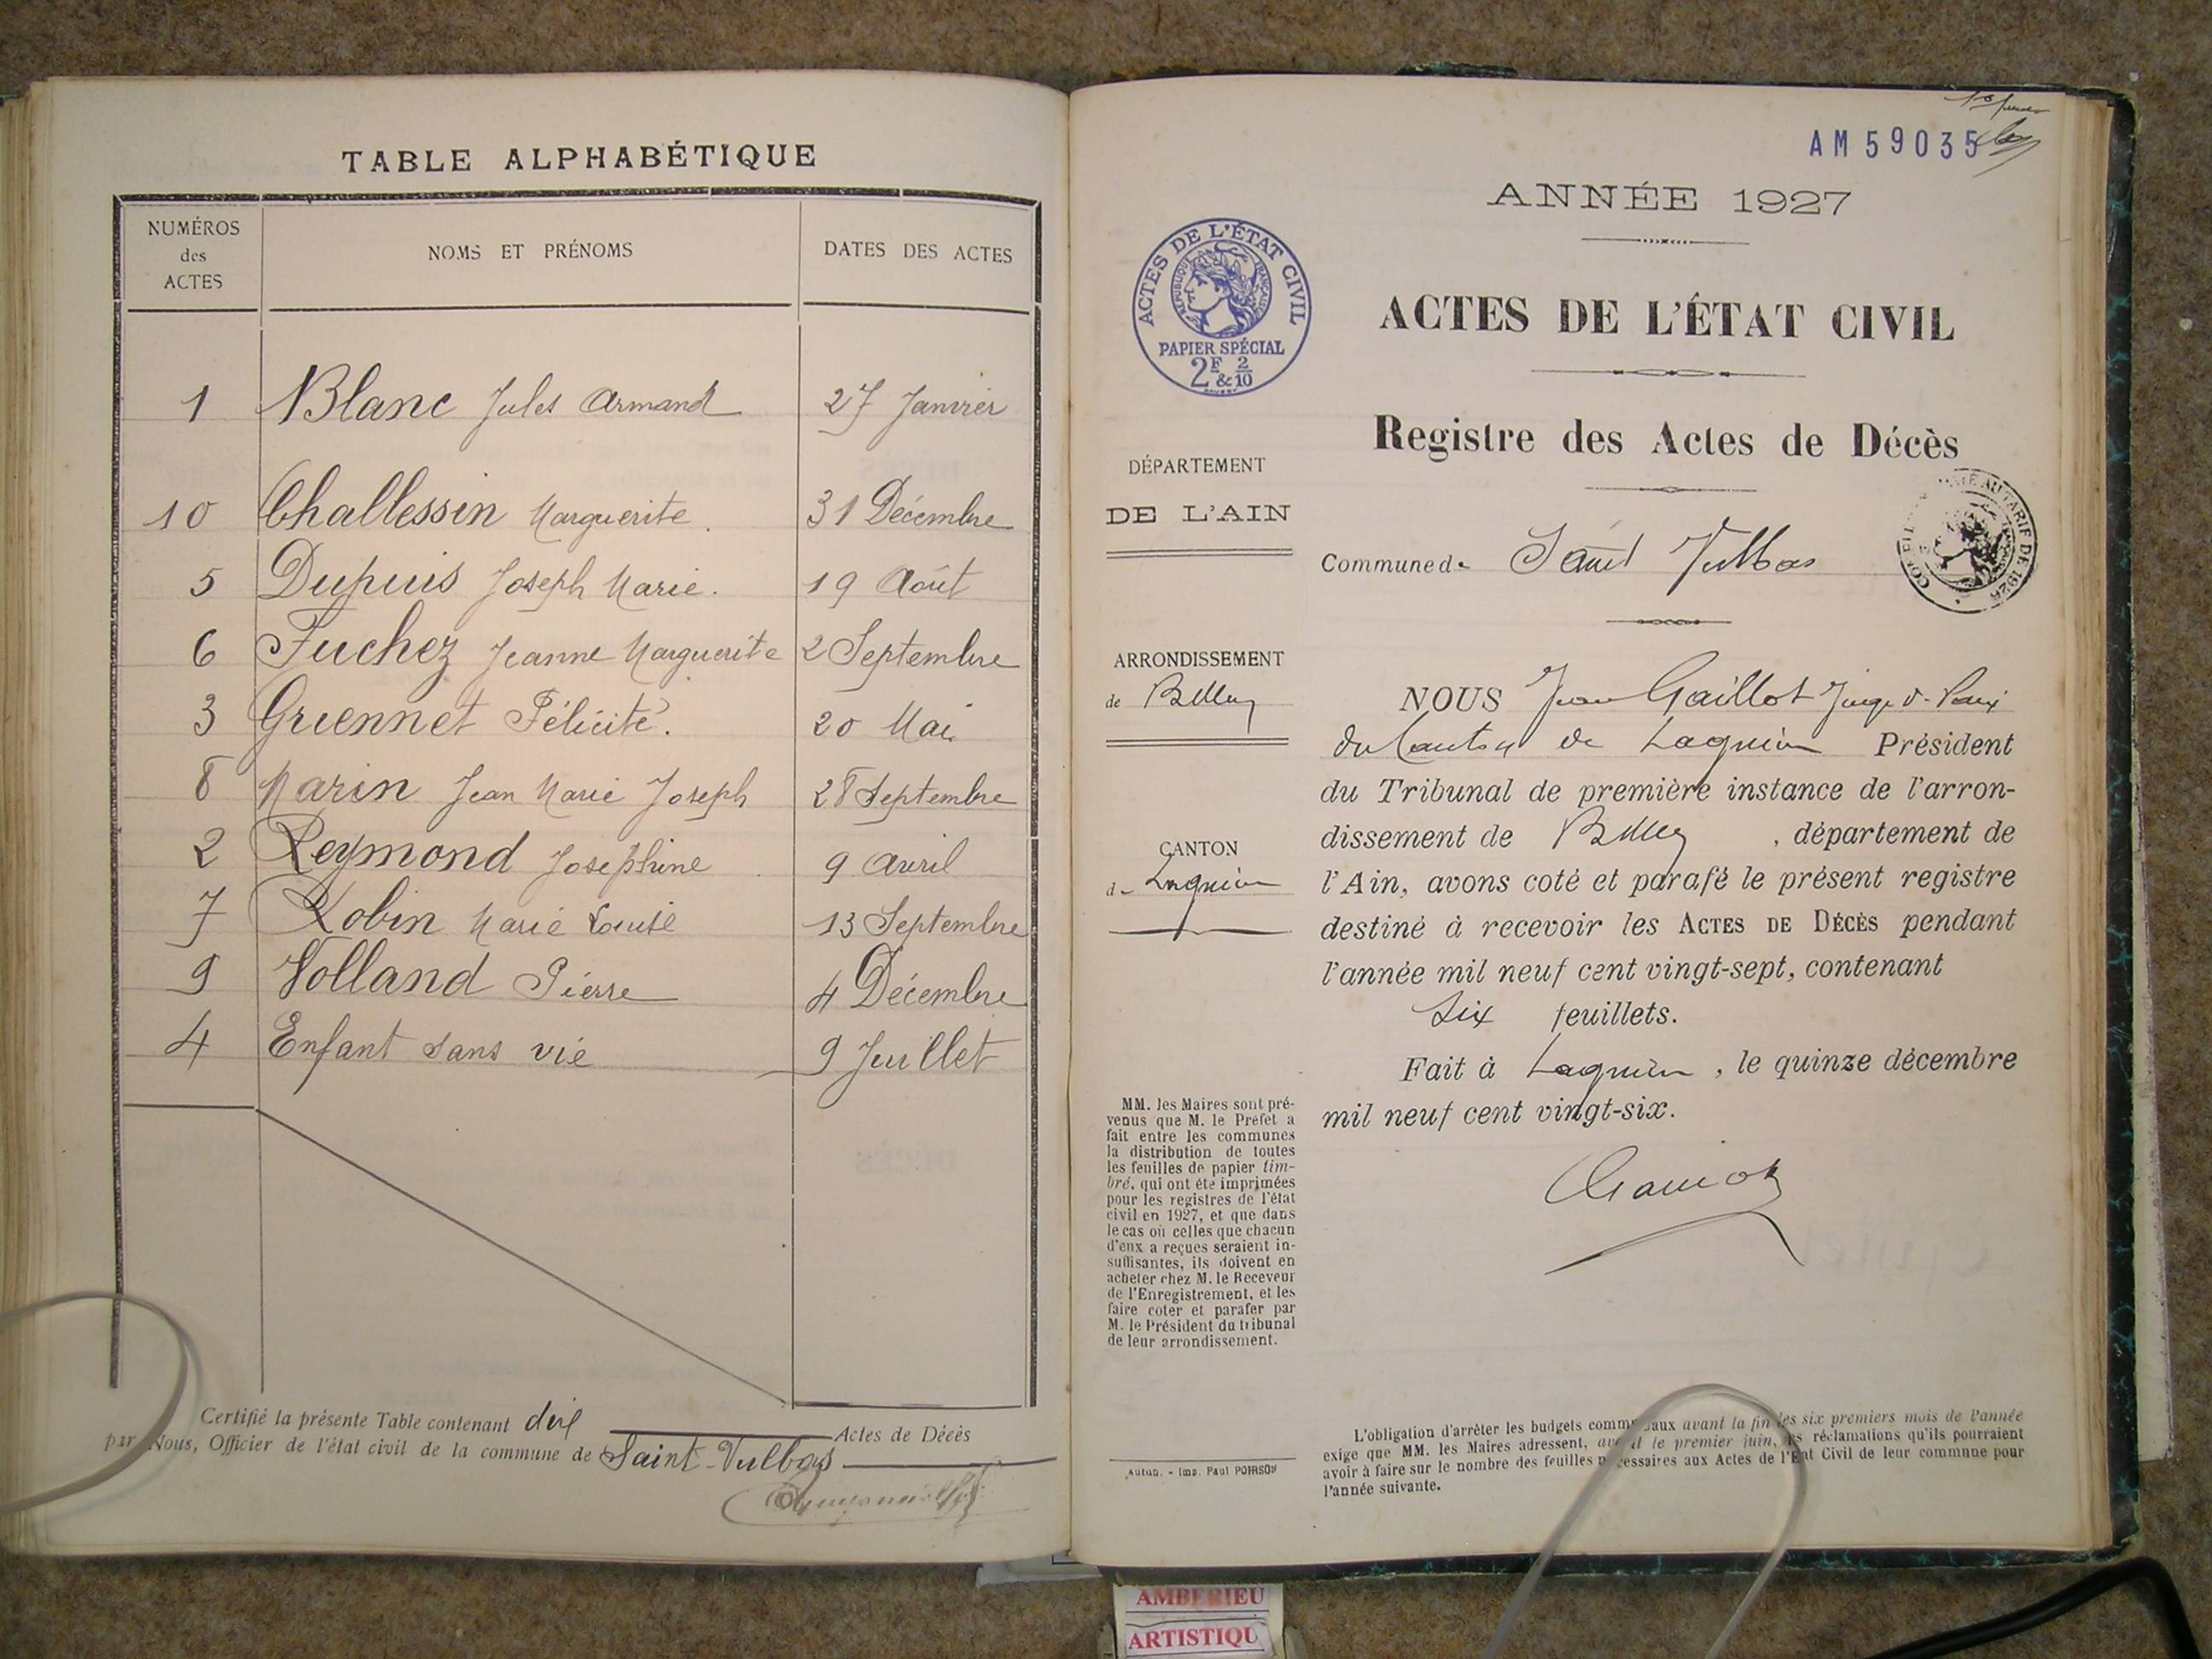 TABLE ALPHABÉTIQUE
NUMÉROS des ACTES NOMS ET PRÉNOMS DATES DES ACTES
1 Blanc Jules Armand 27 Janvier
10 Challessin Marguerite. 31 Décembre
5 Dupuis Joseph Marie. 19 Août
6 Fuchez Jeanne Marguerite 2 Septembre
3 Griennet Félicité. 20 Mai
8 Marin Jean Marie Joseph 28 Septembre
2 Reymond Joséphine 9 Avril
7 Robin Marie Louise 13 Septembre
9 Volland Pierre 4 Décembre
4 Enfant sans vie 9 Juillet
Certifié la présente Table contenant dix Actes de Décès
par Nous, Officier de l'état civil de la commune de Saint-Vulbas
AM 59035
ANNÉE 1927
ACTES DE L'ÉTAT CIVIL
RÉPUBLIQUE FRANÇAISE
PAPIER SPÉCIAL
2F & 2/10
ACTES DE L'ÉTAT CIVIL
Registre des Actes de Décès
AU TARIF DE 1926
DÉPARTEMENT
DE L'AIN
Commune de Saint Vulbas
ARRONDISSEMENT
de Belley
CANTON
de Lagnieu
NOUS Jean Gaillot Juge de Paix
du Canton de Lagnieu Président
du Tribunal de première instance de l'arron-
dissement de Belley, département de
l'Ain, avons coté et parafé le présent registre
destiné à recevoir les ACTES DE DÉCÈS pendant
l'année mil neuf cent vingt-sept, contenant
six feuillets.
Fait à Lagnieu, le quinze décembre
mil neuf cent vingt-six.
MM. les Maires sont pré-
venus que M. le Préfet a
fait entre les communes
la distribution de toutes
les feuilles de papier tim-
bré, qui ont été imprimées
pour les registres de l'état
civil en 1927, et que dans
le cas où celles que chacun
d'eux a reçues seraient in-
suffisantes, ils doivent en
acheter chez M. le Receveur
de l'Enregistrement, et les
faire coter et parafer par
M. le Président du tribunal
de leur arrondissement.
Autun. - Imp. Paul POIRSON
L'obligation d'arrêter les budgets communaux avant la fin des six premiers mois de l'année
exige que MM. les Maires adressent, avant le premier juin, les réclamations qu'ils pourraient
avoir à faire sur le nombre des feuilles nécessaires aux Actes de l'Etat Civil de leur commune pour
l'année suivante.
AMBERIEU
ARTISTIQU